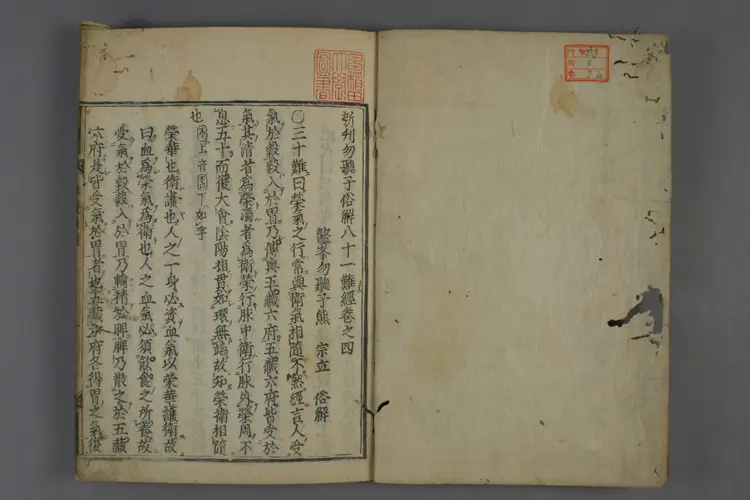 新刊勿聽子俗解八十一難經卷之四
鼇峯勿聽子熊 宗立 俗解
○三十難曰榮氣之行常與衛氣相隨不然經言人受
氣於穀穀入於胃乃傳與五藏六府五藏六府皆受於
氣其清者爲榮濁者爲衛榮行脉中衛行脉外榮周不
息五十而復大會陰陽相貫如環無端故知榮衛相隨
也
榮華也衛護也人之一身必資血氣以榮華護衛故
曰血爲榮氣爲衛也人之血氣必須飲食之所養故
受氣於穀穀入於胃乃輸精於脾脾乃散之於五藏
六府是皆受氣於胃者也五藏六府各得胃之氣復